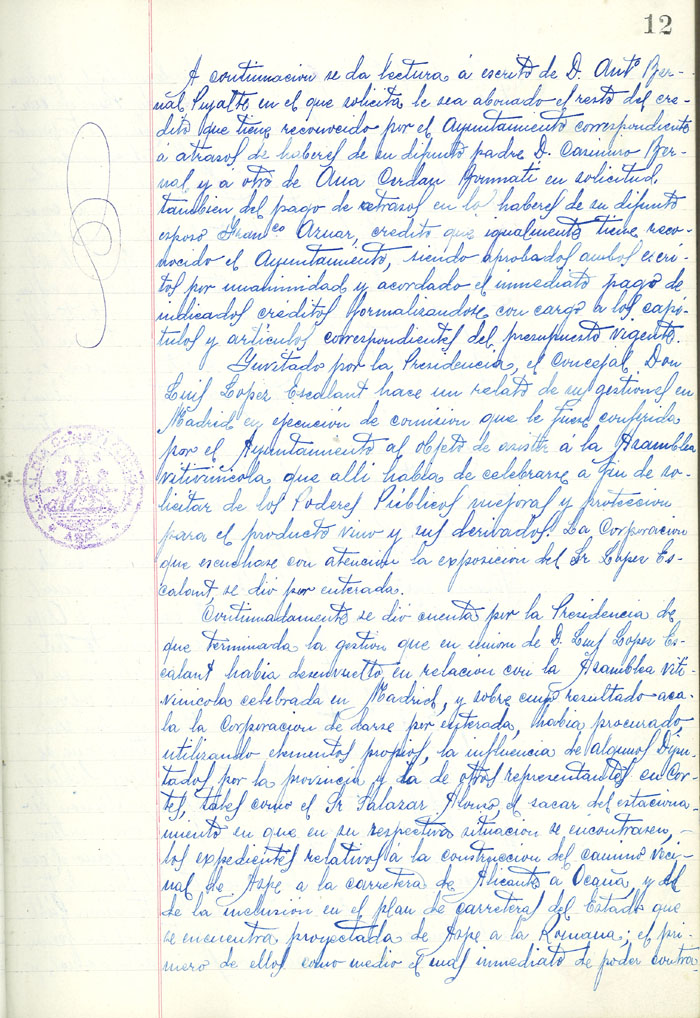 12
A continuacion se da lectura á escrito de D. Antº Ber-
nal Puyalto en el que solicita le sea abonado el resto del cre-
dito que tiene reconocido por el Ayuntamiento correspondiente
á atrasos de haberes de su difunto padre D. Casimiro Ber-
nal y á otro de Ana Cerdan en solicitud
tambien del pago de atrasos en los haberes de su difunto
esposo Franco Aznar, credito que igualmente tiene reco-
nocido el Ayuntamiento, siendo aprobados ambos escri-
tos por unanimidad y acordado el inmediato pago de
indicados créditos formalizandose con cargo a los capí-
tulos y articulos correspondientes del presupuesto vigente.
Invitado por la Presidencia, el concejal Don
Luis Lopez Escalant hace un relato de sus gestiones en
Madrid en ejecución de comision que le fuese conferida
por el Ayuntamiento al objeto de asistir á la Asamblea
vitivinícola que alli habia de celebrarse a fin de so-
licitar de los Poderes Públicos mejoras y proteccion
para el producto vino y sus derivados. La Corporacion
que escuchase con atencion la exposicion del Sr Lopez Es-
calant se dio por enterada.
Continuadamente se dió cuenta por la Presidencia de
que terminada la gestion que en union de D. Luis Lopez Es-
calant habia desenvuelto en relacion con la Asamblea viti-
vinicola celebrada en Madrid, y sobre cuyo resultado aca-
la la Corporacion de darse por enterada, habia procurado
utilizando elementos propios, la influencia de algunos Dipu-
tados por la provincia y la de otros representantes en Cor-
tes, tales como el Sr Salazar Alonso, el sacar del estaciona-
miento en que en su respectiva situacion se encontrasen,
los expedientes relativos á la construccion del camino veci-
nal de Aspe a la carretera de Alicante á Ocaña, y el
de la inclusión en el plan de carreteras del Estado que
se encuentra proyectada de Aspe a la Romana; el pri-
mero de ellos como medio el mas inmediato de poder contra
ASPE